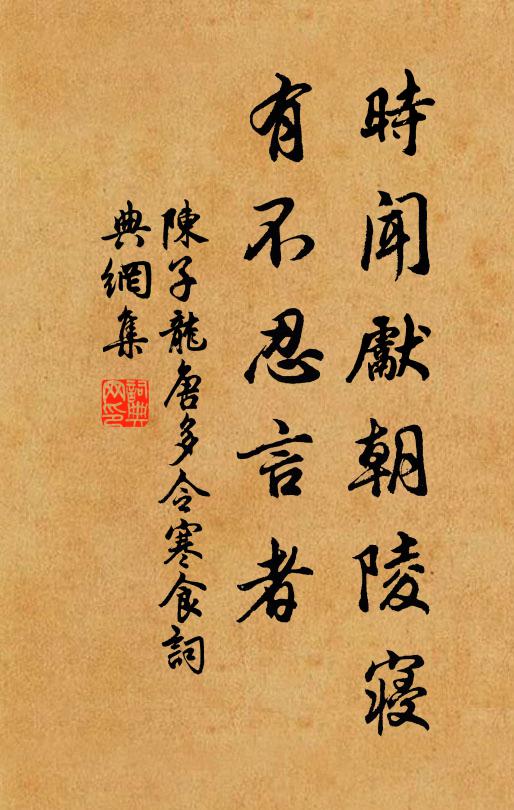 時聞獻朝陵寢
有不忍言者
陳子龍唐多令寒食詞
典網集
詞典
网印